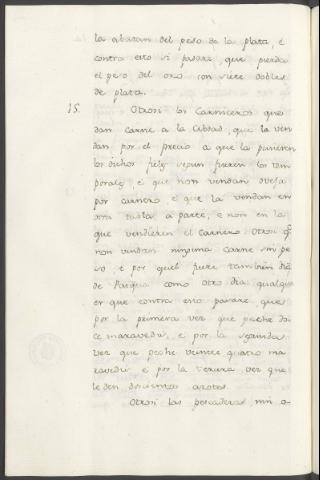 la abatan del peso de la plata, e
contra esto si pasare, que pierda
el peso del oro con siete dobles
de plata.
15. Otrosi los Carniceros que
dan carne a la Cibdad, que la ven
dan por el precio a que la pusieren
los dichos fieles segun fueren los tem
porales, e que non vendan oveja
por carnero, e que la vendan en
otra tabla a parte, e non en la
que vendieren el Carnero. Otrosi q
non vendan ninguna carne sin pe
so, e por quel fuere tambien dia
de Pasqua como otro dia qualqui
er que contra esto pasare, que
por la primera vez que peche do
ce maravedis, e por la segunda
vez que peche veinte quatro ma
ravedis e por la tercera vez que
le den doscientos azotes.
Otrosi las pescaderas nin o-